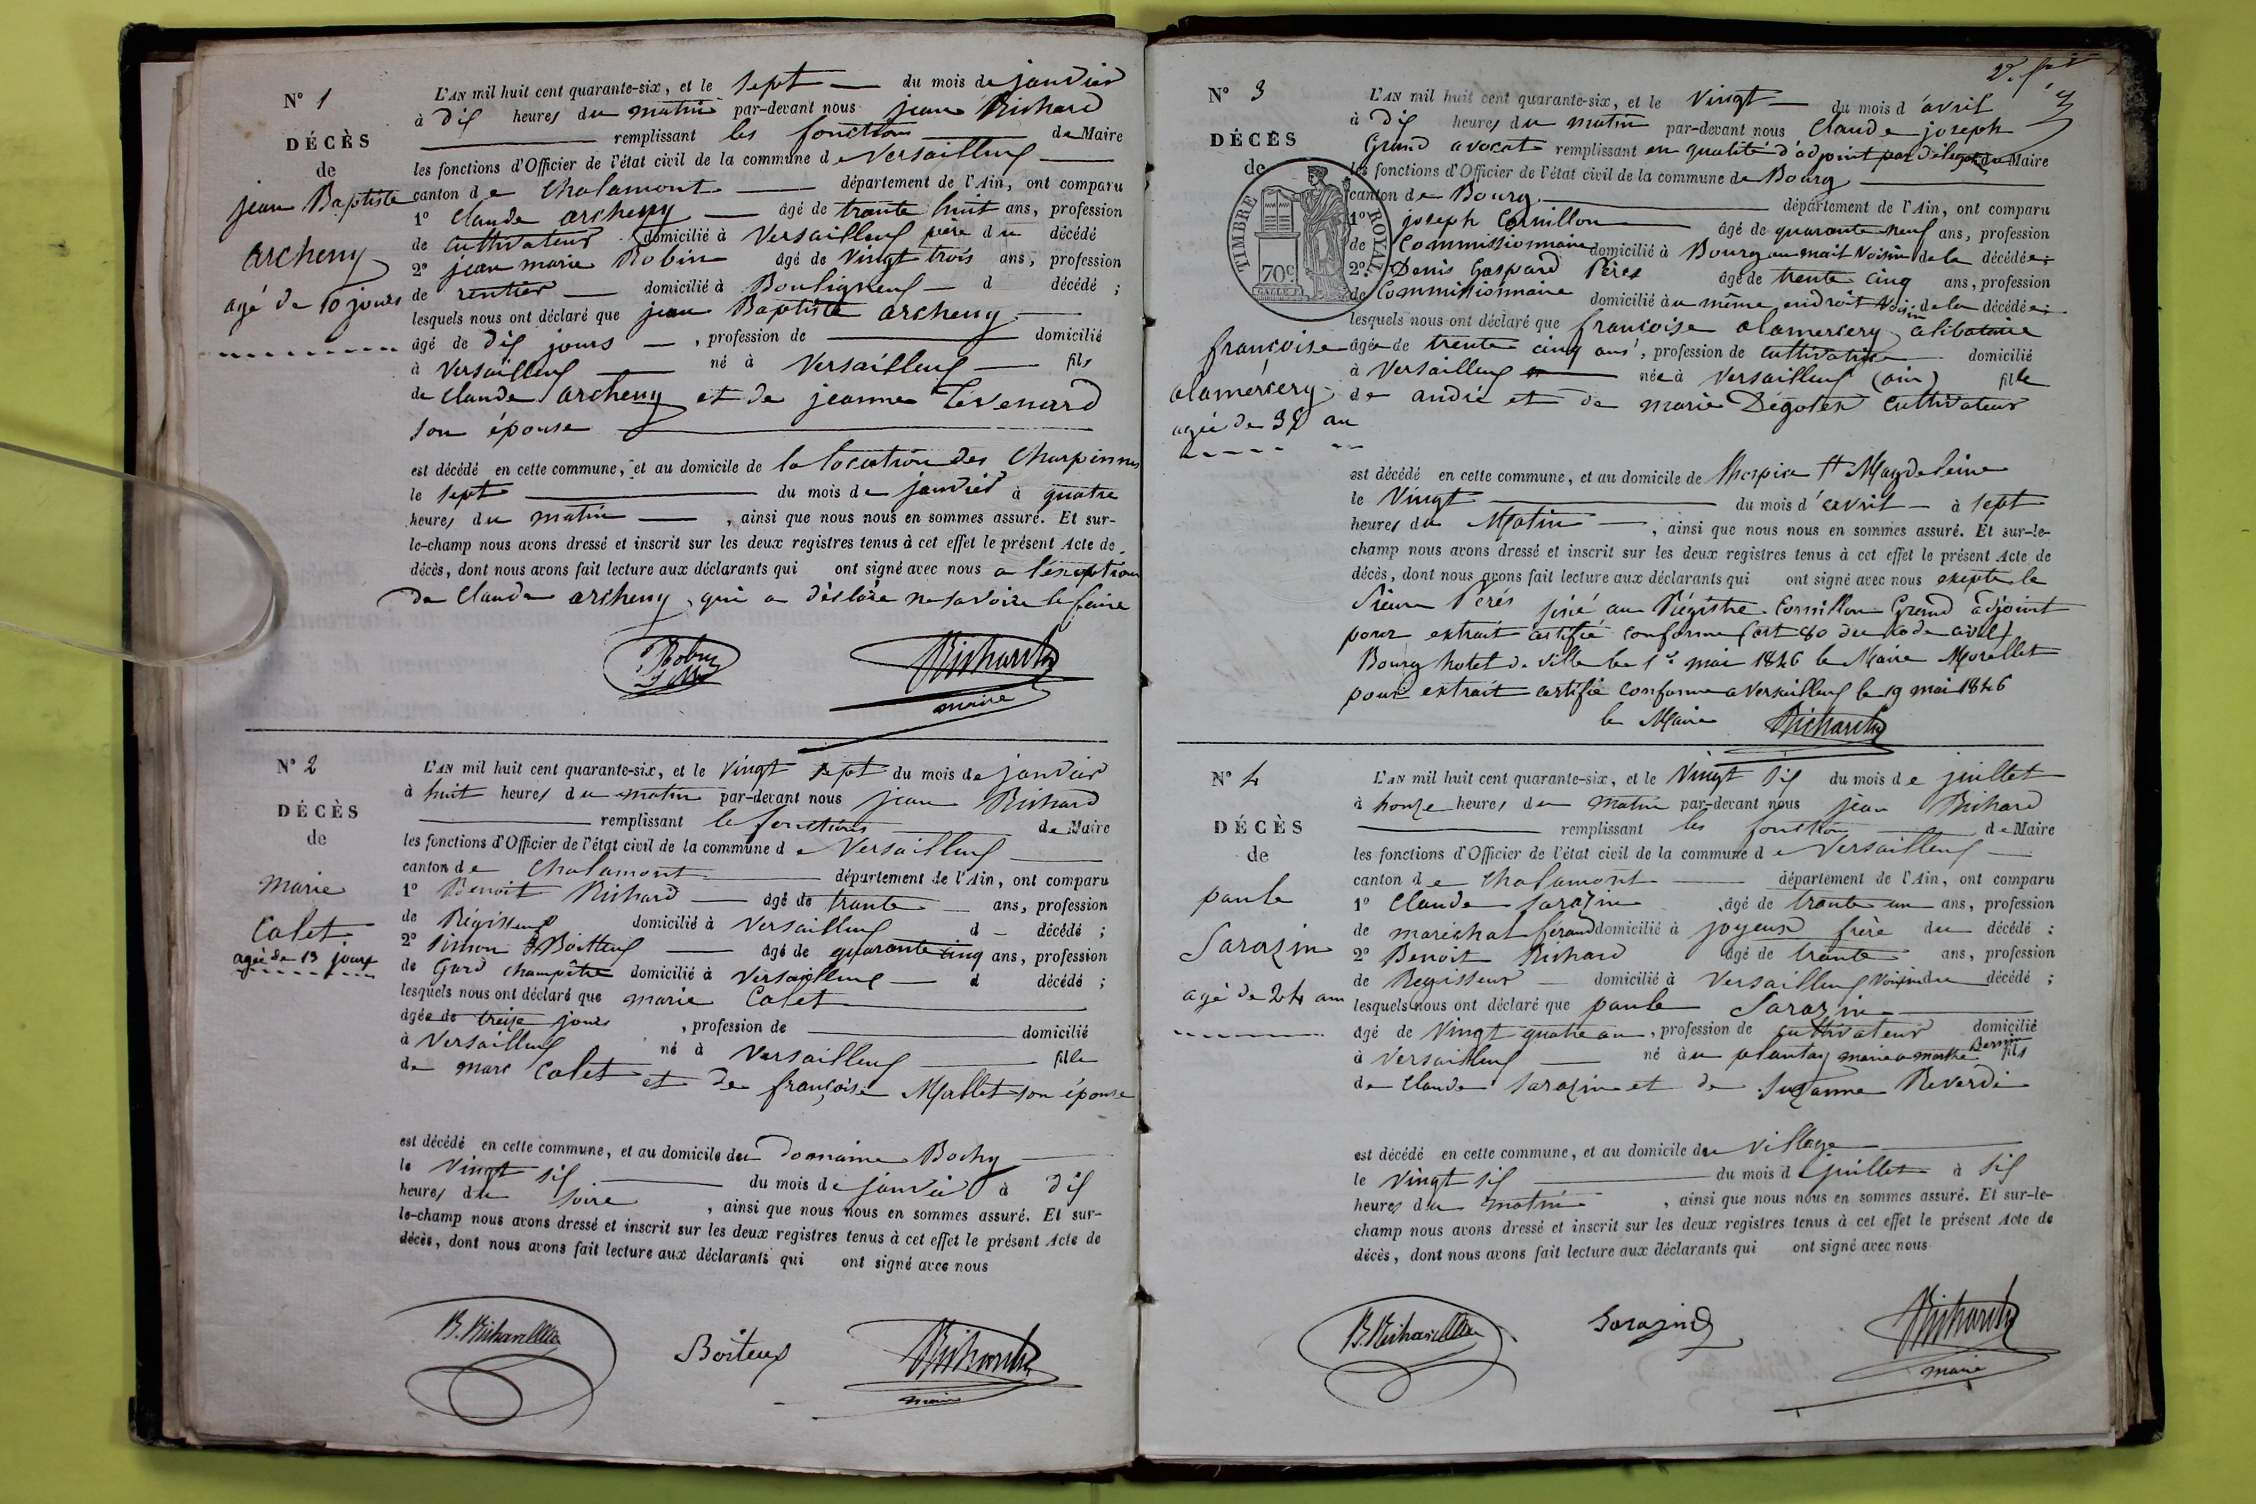 N° 1
DÉCÈS
de
jean Baptiste
archeny
agé de 10 jours
L'AN mil huit cent quarante-six, et le sept du mois de janvier
à dix heures du matin par-devant nous jean Richard
remplissant les fonctions de Maire
les fonctions d'Officier de l'état civil de la commune de Versailleux
canton de Chalamont département de l'Ain, ont comparu
1° Claude archeny âgé de trante huit ans, profession
de cultivateur domicilié à Versailleux père du décédé
2° jean marie Robin âgé de vingt trois ans, profession
de rentier domicilié à Bouligneux d décédé ;
lesquels nous ont déclaré que jean Baptiste archeny
âgé de dix jours , profession de domicilié
à Versailleux né à Versailleux fils
de claude archeny et de jeanne Tevenard
son épouse
est décédé en cette commune, et au domicile de la location des Charpennes
le sept du mois de janvier à quatre
heures du matin , ainsi que nous nous en sommes assuré. Et sur-
le-champ nous avons dressé et inscrit sur les deux registres tenus à cet effet le présent Acte de
décès, dont nous avons fait lecture aux déclarants qui ont signé avec nous a l'exeption
de Claude archeny qui a déclaré ne savoire le faire
Robin
Richard
maire
N° 2
DÉCÈS
de
marie
Colet
agée de 13 jours
L'AN mil huit cent quarante-six, et le vingt sept du mois de janvier
à huit heures du matin par-devant nous jean Richard
remplissant le fonctions de Maire
les fonctions d'Officier de l'état civil de la commune de Versailleux
canton de Chalamont département de l'Ain, ont comparu
1° Benoit Richard âgé de trante ans, profession
de Régisseur domicilié à Versailleux d décédé ;
2° Simon Boitteux âgé de quarante cinq ans, profession
de Gard champêtre domicilié à Versailleux d décédé ;
lesquels nous ont déclaré que marie Colet
âgée de treize jours , profession de domicilié
à Versailleux né à Versailleux fille
de marc Colet et de françoise Mallet son épouse
est décédé en cette commune, et au domicile du Domaine Bochy
le vingt six du mois de janvier à dix
heures du soire , ainsi que nous nous en sommes assuré. Et sur-
le-champ nous avons dressé et inscrit sur les deux registres tenus à cet effet le présent Acte de
décès, dont nous avons fait lecture aux déclarants qui ont signé avec nous
B. Richard
Boiteux
Richard
maire
N° 3
DÉCÈS
de
TIMBRE ROYAL
70c
françoise
alamercery
agée de 35 an
L'AN mil huit cent quarante-six, et le vingt du mois d'avril
à dix heures du matin par-devant nous Claude joseph
Grand avocat remplissant en qualité d'adjoint par délégation du Maire
les fonctions d'Officier de l'état civil de la commune de Bourg
canton de Bourg département de l'Ain, ont comparu
1° joseph Cornillon âgé de quarante neuf ans, profession
de Commissionnaire domicilié à Bourg voisin de la décédée ;
2° Denis Gaspard Pérès âgé de trente cinq ans, profession
de Commissionnaire domicilié au même endroit voisin de la décédée ;
lesquels nous ont déclaré que françoise alamercery célibataire
âgée de trente cinq ans , profession de cultivatrice domicilié
à Versailleux née à Versailleux (ain) fille
de andré et de marie Dégoles cultivateur
est décédé en cette commune, et au domicile de l'hospice Ste Magdeleine
le vingt du mois d'avril à sept
heures du matin , ainsi que nous nous en sommes assuré. Et sur-le-
champ nous avons dressé et inscrit sur les deux registres tenus à cet effet le présent Acte de
décès, dont nous avons fait lecture aux déclarants qui ont signé avec nous exepté le
Sieur Pérès signé au Régistre Cornillon Grand adjoint
pour extrait certifié conforme (art 80 du code civil)
Bourg hotel de ville le 1er mai 1846 le Maire Morellet
pour extrait certifié conforme a Versailleux le 19 mai 1846
le Maire Richard
N° 4
DÉCÈS
de
paule
Sarazin
agé de 24 ans
L'AN mil huit cent quarante-six, et le vingt six du mois de juillet
à honze heures du matin par-devant nous jean Richard
remplissant les fonction de Maire
les fonctions d'Officier de l'état civil de la commune de Versailleux
canton de Chalamont département de l'Ain, ont comparu
1° Claude Sarazin âgé de trante un ans, profession
de maréchal férand domicilié à joyeux frère du décédé ;
2° Benoit Richard âgé de trante ans, profession
de Regisseur domicilié à Versailleux voisin du décédé ;
lesquels nous ont déclaré que paule Sarazin
âgé de vingt quatre an , profession de cultivateur domicilié
à Versailleux né au plantay marié a marthe Bernin fils
de claude Sarazin et de Suzanne Reverdi
est décédé en cette commune, et au domicile du village
le vingt six du mois de juillet à six
heures du matin , ainsi que nous nous en sommes assuré. Et sur-le-
champ nous avons dressé et inscrit sur les deux registres tenus à cet effet le présent Acte de
décès, dont nous avons fait lecture aux déclarants qui ont signé avec nous
B. Richard
Sarazin
Richard
maire